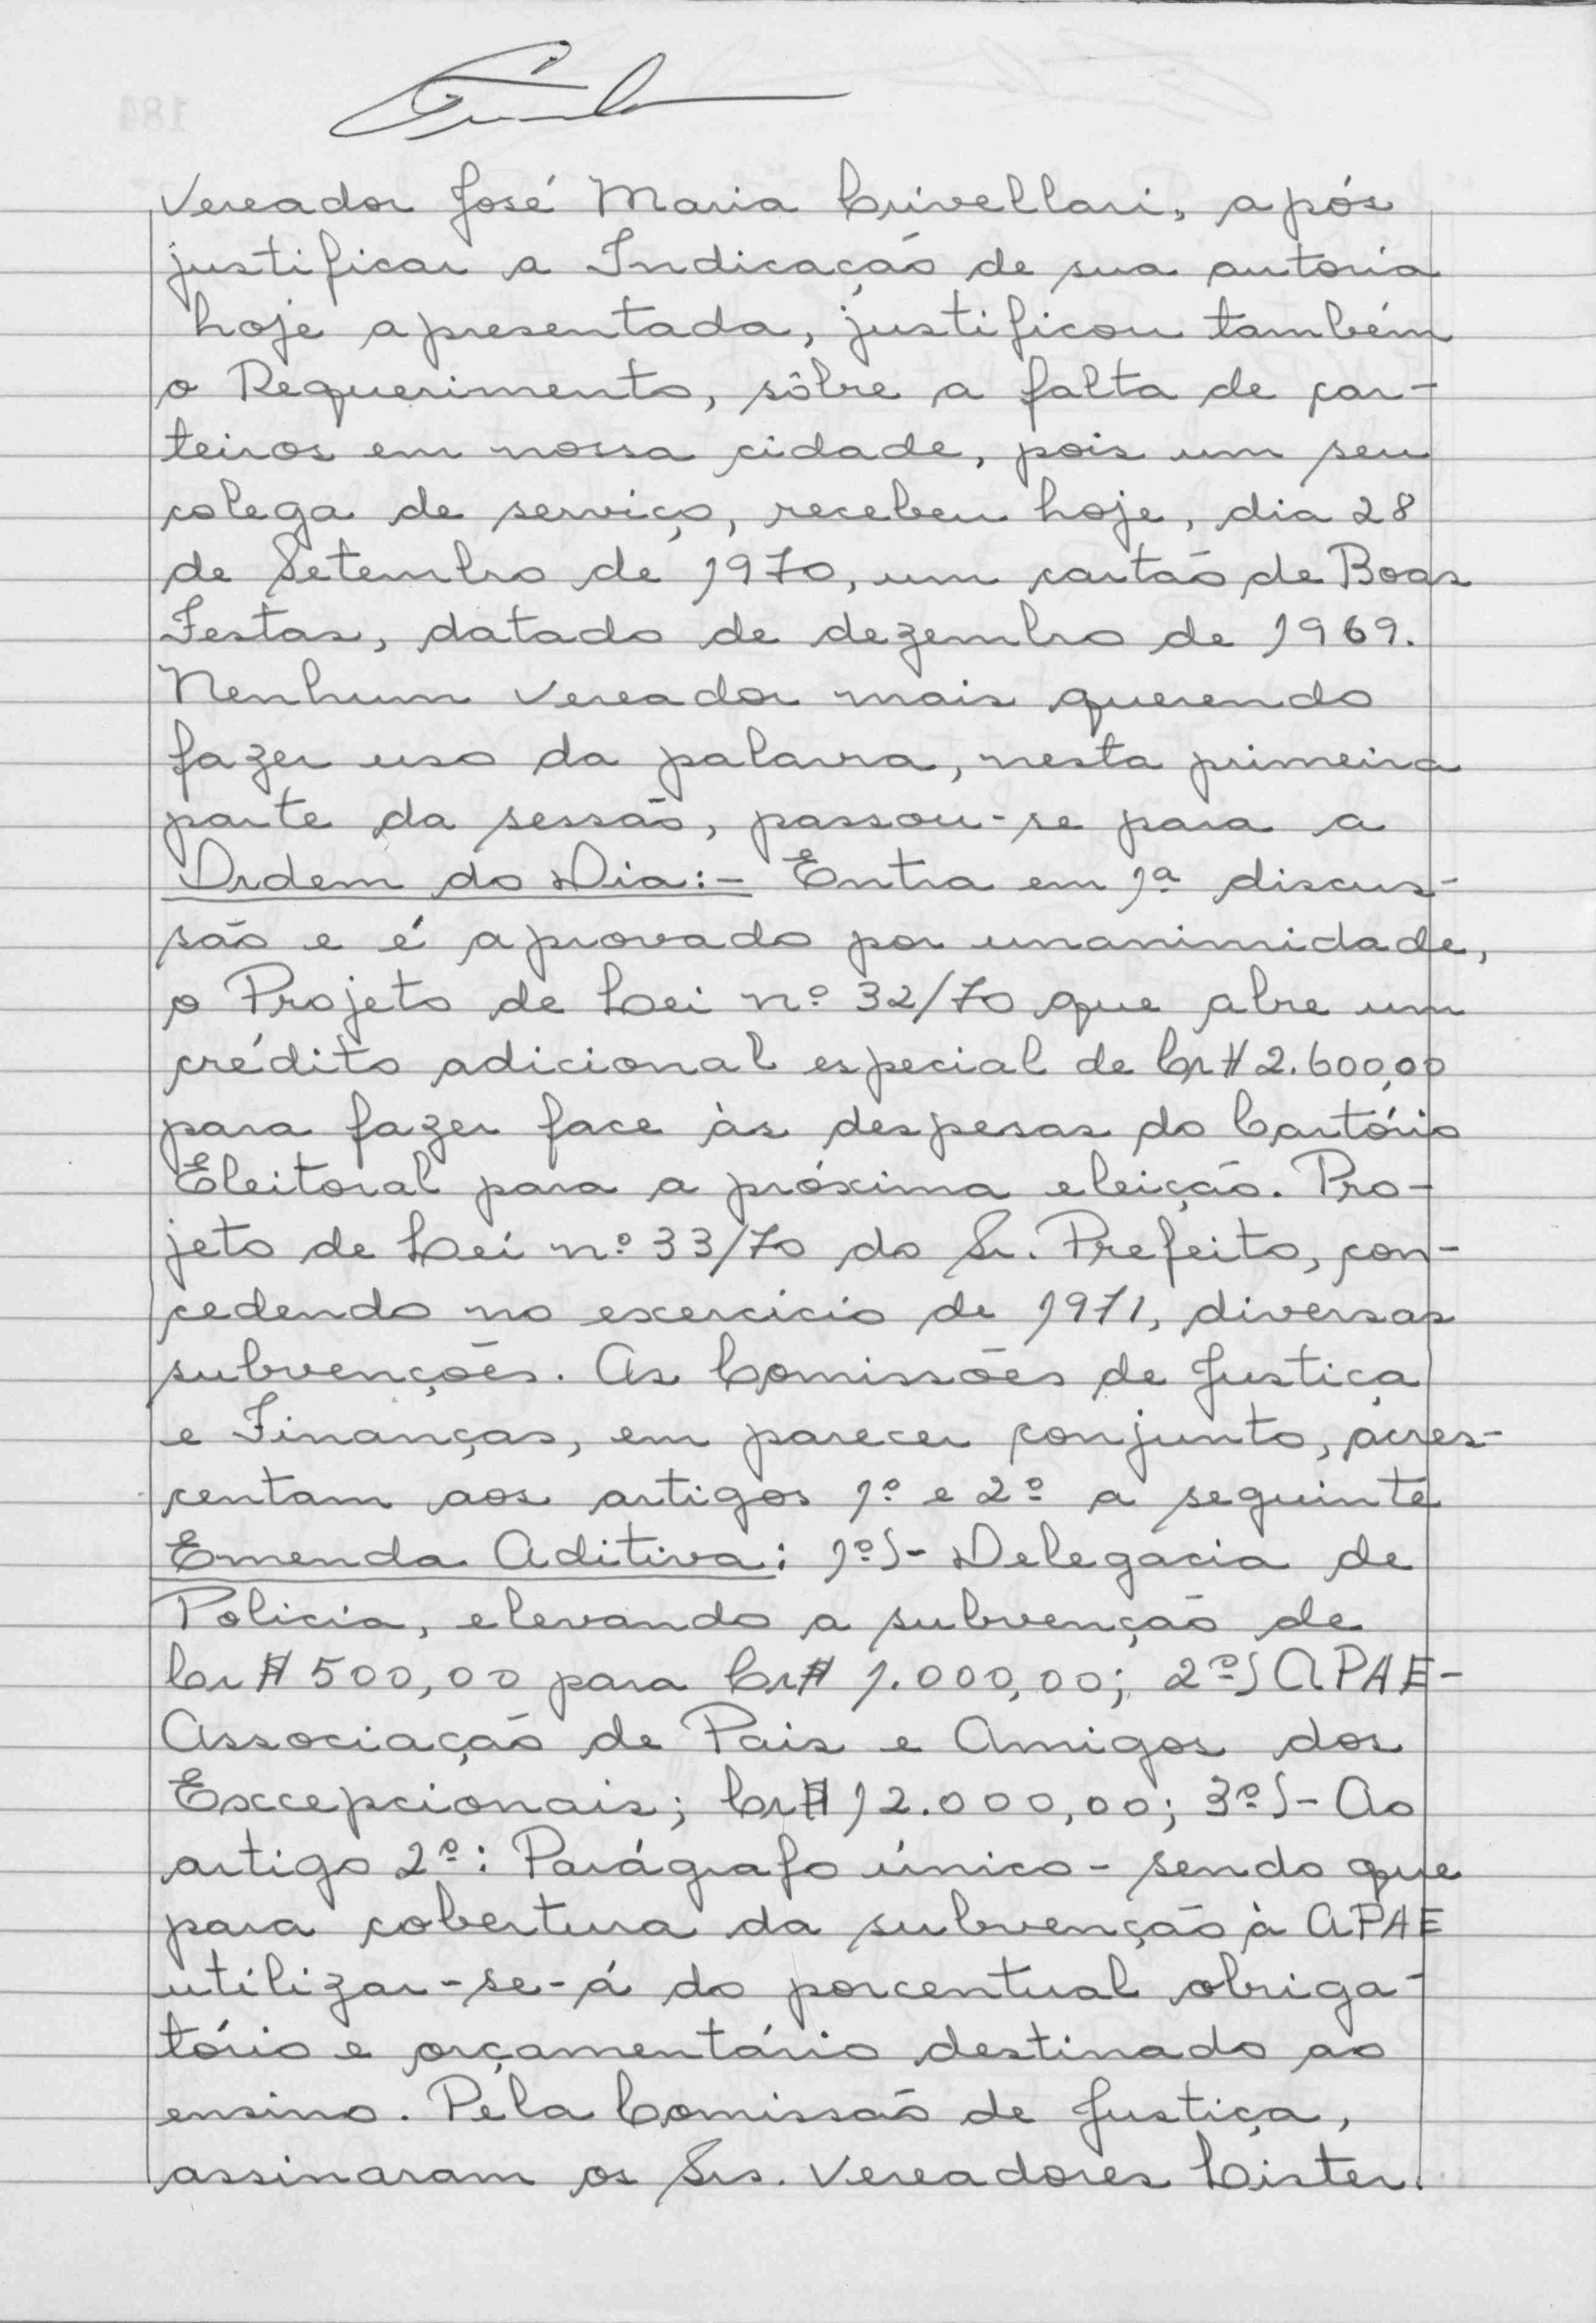 Vereador José Maria Crivellari, após
justificar a Indicação de sua autoria
hoje apresentada, justificou também
o Requerimento, sôbre a falta de car-
teiros em nossa cidade, pois um seu
colega de serviço, recebeu hoje, dia 28
de Setembro de 1970, um cartão de Boas
Festas, datado de dezembro de 1969.
Nenhum vereador mais querendo
fazer uso da palavra, nesta primeira
parte da sessão, passou-se para a
Ordem do Dia:- Entra em 1ª discus-
são e é aprovado por unanimidade,
o Projeto de Lei nº 32/70 que abre um
crédito adicional especial de Cr$ 2.600,00
para fazer face às despesas do Cartório
Eleitoral para a próxima eleição. Pro-
jeto de Lei nº 33/70 do Sr. Prefeito, con-
cedendo no exercício de 1971, diversas
subvenções. As Comissões de Justiça
e Finanças, em parecer conjunto, acres-
centam aos artigos 1º e 2º a seguinte
Emenda Aditiva: 1º)- Delegacia de
Policia, elevando a subvenção de
Cr$ 500,00 para Cr$ 1.000,00; 2º) APAE-
Associação de Pais e Amigos dos
Excepcionais; Cr$ 12.000,00; 3º)- Ao
artigo 2º: Parágrafo único - sendo que
para cobertura da subvenção à APAE
utilizar-se-á do porcentual obriga-
tório e orçamentário destinado ao
ensino. Pela Comissão de Justiça,
assinaram os Srs. Vereadores Lister